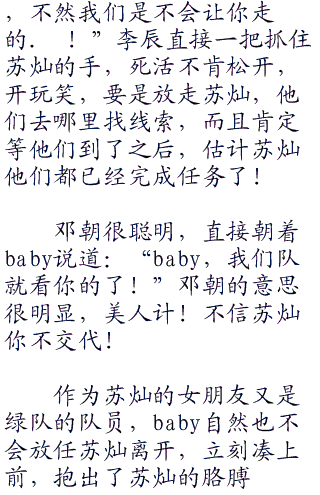 ，不然我们是不会让你走
的．！”李辰直接一把抓住
苏灿的手，死活不肯松开，
开玩笑，要是放走苏灿，他
们去哪里找线索，而且肯定
等他们到了之后，估计苏灿
他们都已经完成任务了！
邓朝很聪明，直接朝着
baby说道：“baby，我们队
就看你的了！”邓朝的意思
很明显，美人计！不信苏灿
你不交代！
作为苏灿的女朋友又是
绿队的队员，baby自然也不
会放任苏灿离开，立刻凑上
前，抱出了苏灿的胳膊